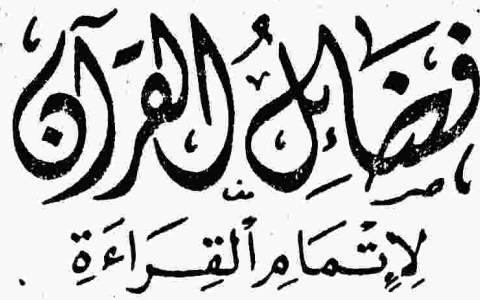 فضائل القرآن
لِإِتْمَامِ ٱلْقِرَاءَةِ